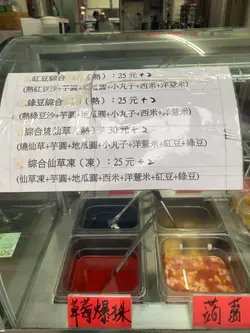 紅豆綜合（熱）：25元+2
(熱紅豆沙+芋圓+地瓜圓+小丸子+西米+洋薏米)
綠豆綜合（熱）：25元+2
(熱綠豆沙+芋圓+地瓜圓+小丸子+西米+洋薏米)
綜合燒仙草（熱）：30元+2
(燒仙草+芋圓+地瓜圓+小丸子+洋薏米+紅豆+綠豆)
綜合仙草凍（凍）：25元+2
(仙草凍+芋圓+地瓜圓+西米+洋薏米+紅豆+綠豆)
草莓爆珠
蒟蒻